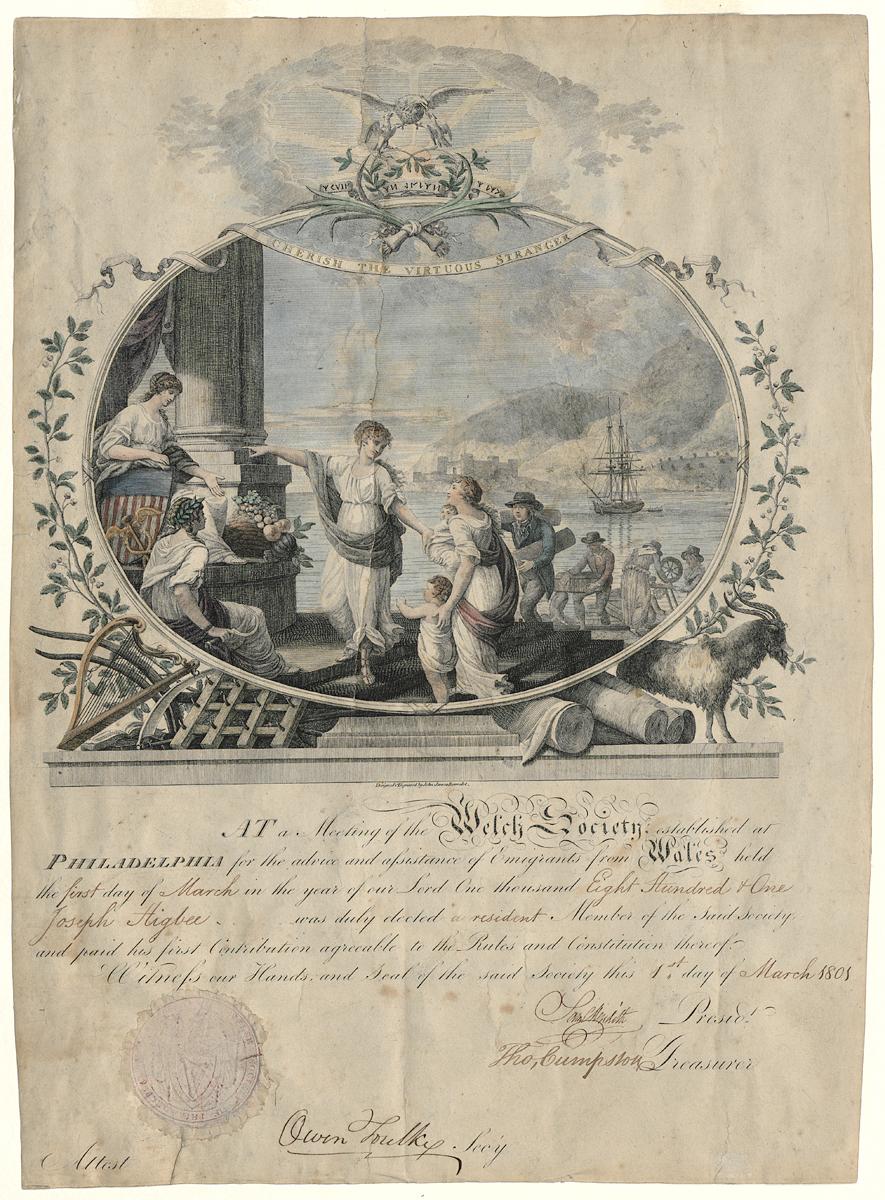 CHERISH THE VIRTUOUS STRANGER
AT a Meeting of the Welch Society, established at
PHILADELPHIA for the advice and assistance of Emigrants from Wales held
the first day of March in the year of our Lord One thousand Eight Hundred & One
Joseph Higbee was duly elected a resident Member of the Said Society
and paid his first Contribution agreeable to the Rules and Constitution thereof.
Witness our Hands, and Seal of the said Society this 1st day of March 1801
Presidt.
Tho, Cumpston Treasurer
Owen Foulke Secy
Attest